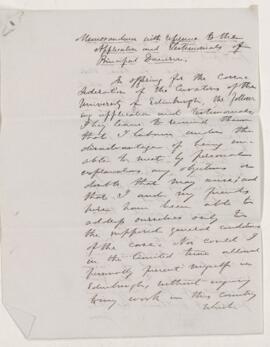 Memorandum with reference to the
Application and Testimonials of
Principal Dawson.
In offering for the consi-
deration of the Curators of the
University of Edinburgh, the follow-
ing application and testimonials,
I beg leave to remind them
that I labour under the
disadvantage of being un-
able to meet, by personal
explanations any objections or
doubts that may arise; and
that I and my friends
here have been able to
address ourselves only to
the supposed general conditions
of the case. Nor could I
in the limited time allowed
personally present myself in
Edinburgh, without injury
to my work in this country
which